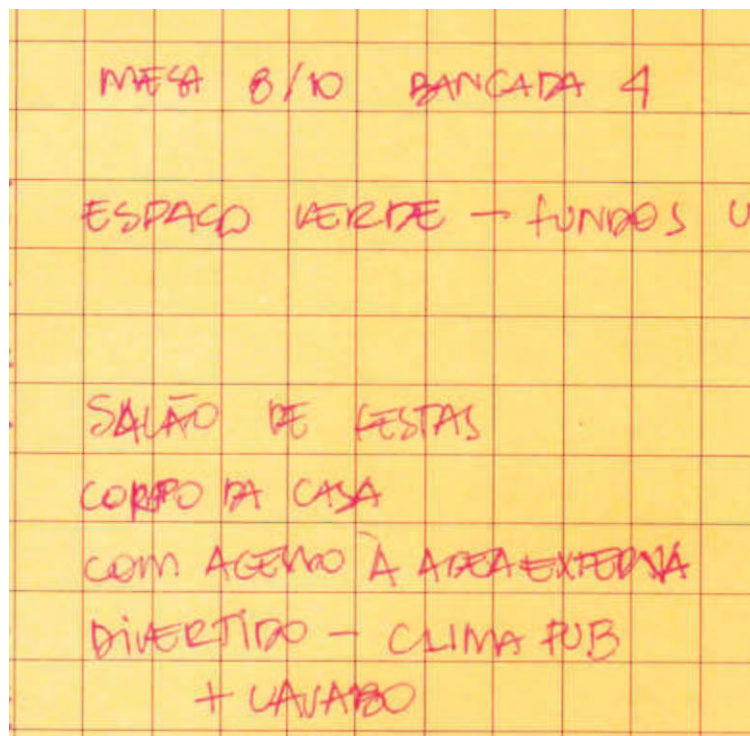 MESA 8/10 BANCADA 4
ESPAÇO VERDE – FUNDOS
SALÃO DE FESTAS
CORPO DA CASA
COM ACESSO À ÁREA EXTERNA
DIVERTIDO – CLIMA PUB
+ LAVABO